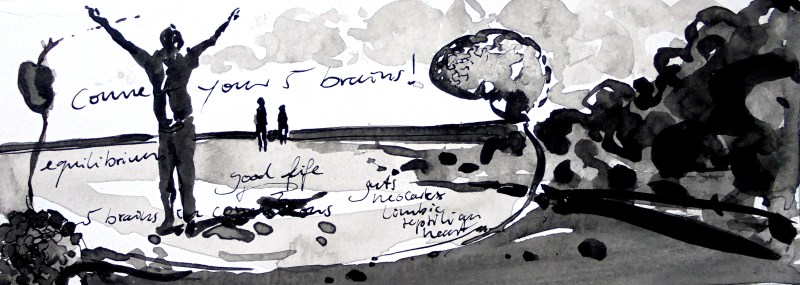 connect your 5 brains!
equilibrium
good life
5 brains in connexions
guts
neocortex
limbic
reptilian
heart